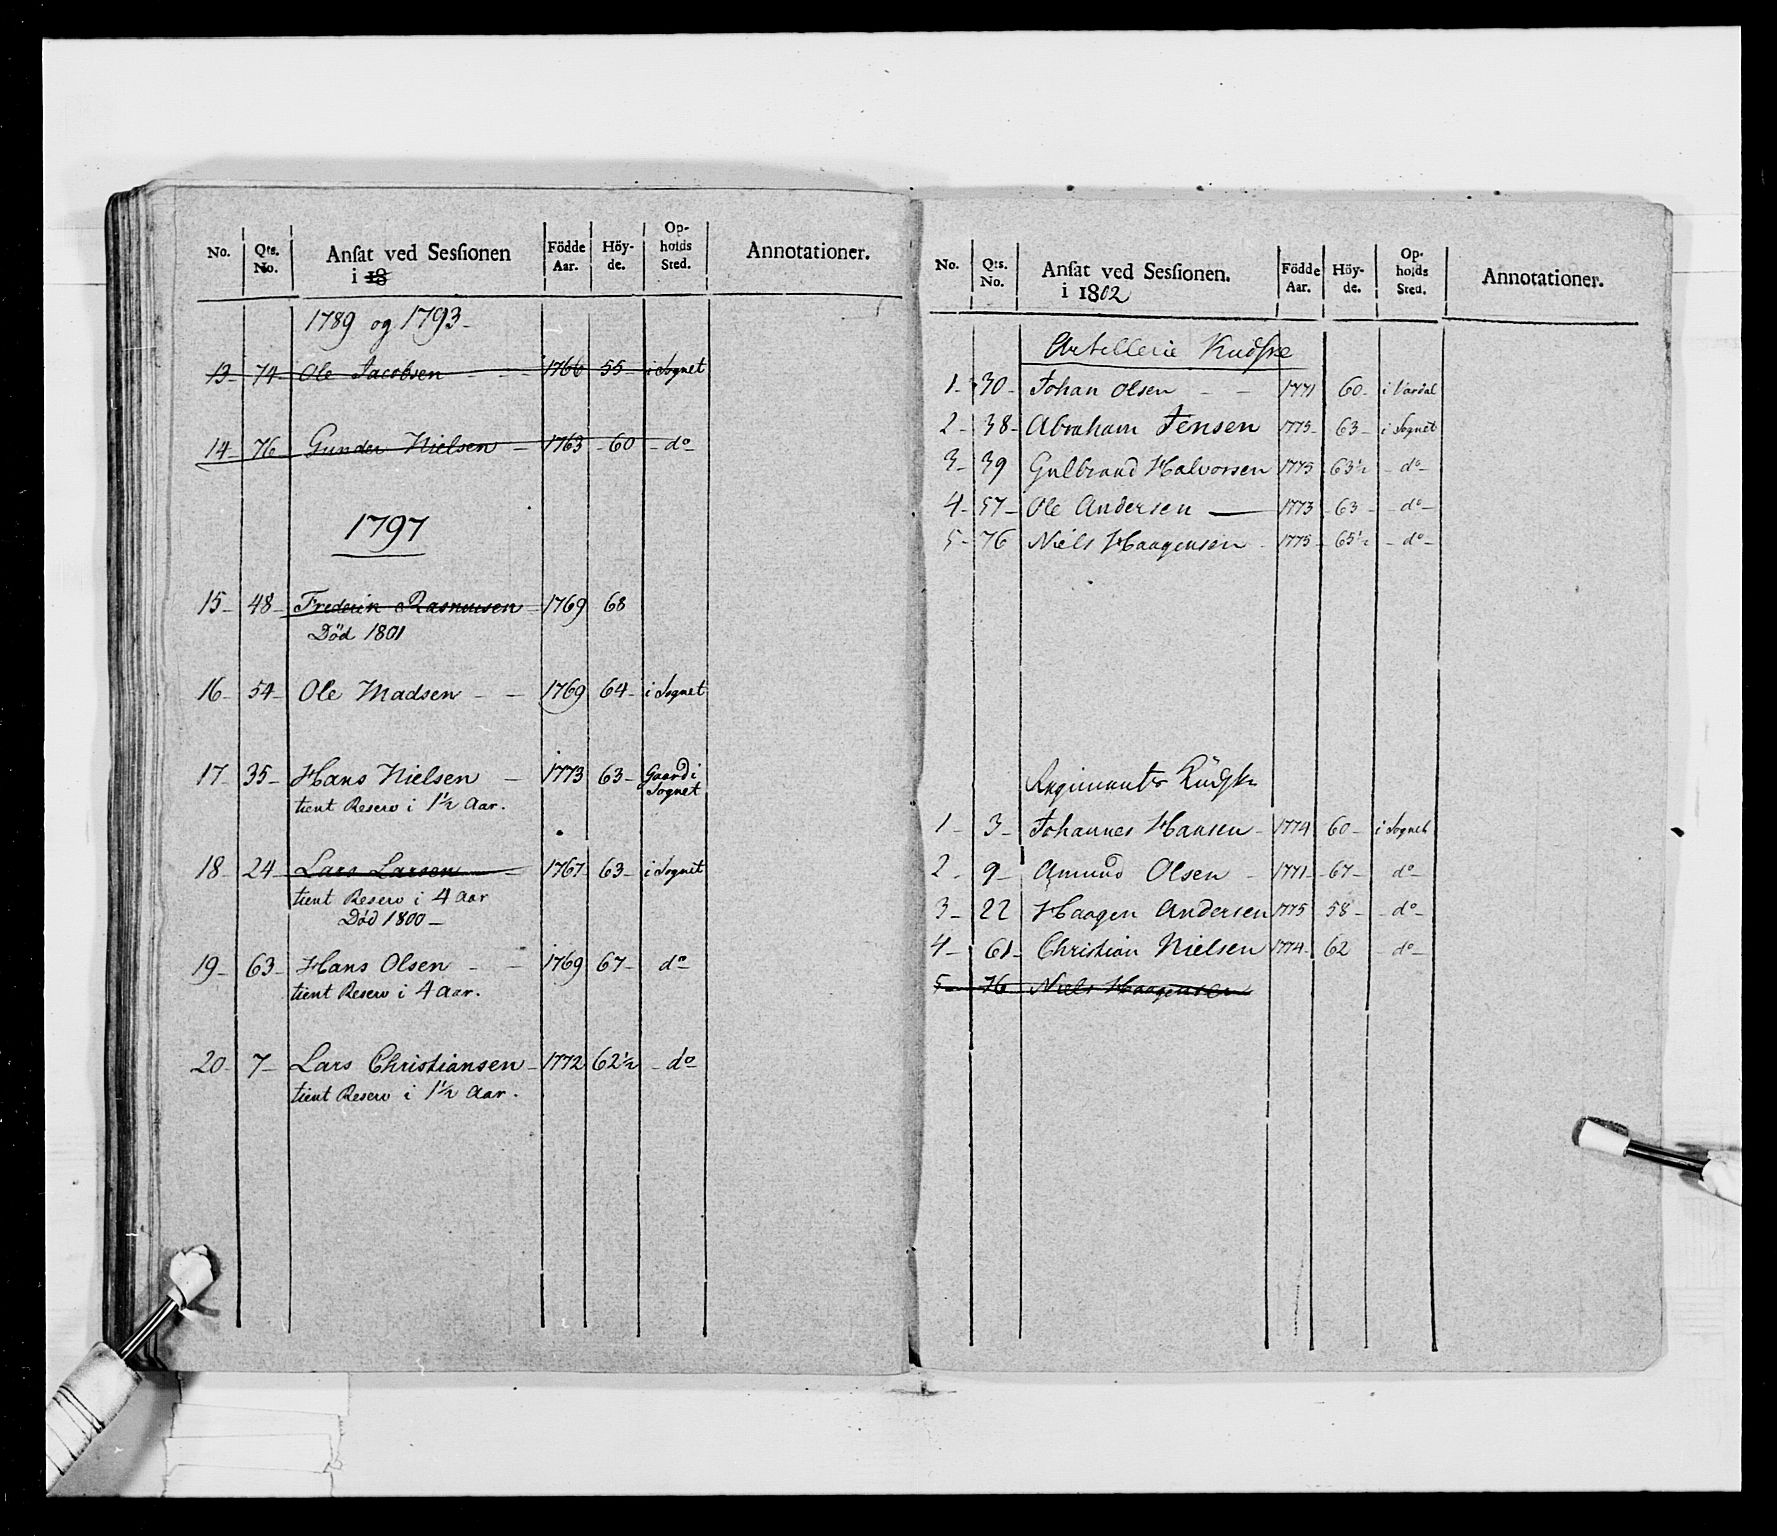 No. Qts. No. Ansat ved Sessionen i 18 Födde Aar. Höy-de. Op-holds Sted. Annotationer.
1789 og 1793-
13- 74- Ole Jacobsen - - 1766 55- i Sognet
14- 76- Gunder Nielsen - 1763 -60 -do-
1797
15- 48- Frederik Rasmusen - 1769 68
Död 1801
16- 54- Ole Madsen - - 1769 64- i Sognet
17- 35- Hans Nielsen - 1773 63- Gaard i Sognet
tient Reserv i 1½ Aar.
18- 24- Lars Larsen - 1767 63- i Sognet
tient Reserv i 4 Aar
Död 1800-
19- 63- Hans Olsen - - 1769 67- do
tient Reserv i 4 Aar.
20- 7- Lars Christiansen - 1772 62½ -do
tient Reserv i 1½ Aar.
No. Qts. No. Ansat ved Sessionen. i 1802 Födde Aar. Höy-de. Op-holds Sted. Annotationer.
Artillerie Kudske
1- 30- Johan Olsen - - 1771 60- i Vardal
2- 38- Abraham Jensen 1775- 63- i Sognet
3- 39 Gulbrand Halvorsen 1775 63½ -do-
4- 57- Ole Andersen - 1773 63 -do-
5- 76 Niels Haagensen - 1775 65½ -do-
Regiments Kudske
1- 3- Johannes Hansen - 1774 60- i Sognet
2- 9- Amund Olsen - 1771- 67- do-
3- 22 Haagen Andersen 1775 58- -do-
4- 61- Christian Nielsen 1774- 62 -do-
5- 76 Niels Haagensen